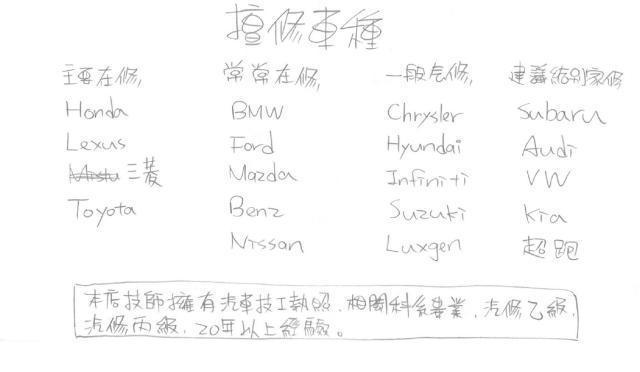 擅修車種
主要在修, 常常在修, 一般会修, 建議給別家修
Honda BMW Chrysler Subaru
Lexus Ford Hyundai Audi
三菱 Mazda Infiniti VW
Toyota Benz Suzuki Kia
Nissan Luxgen 超跑
本店技師擁有汽車技工執照, 相關科系畢業, 汽修乙級,
汽修丙級, 20年以上經驗。